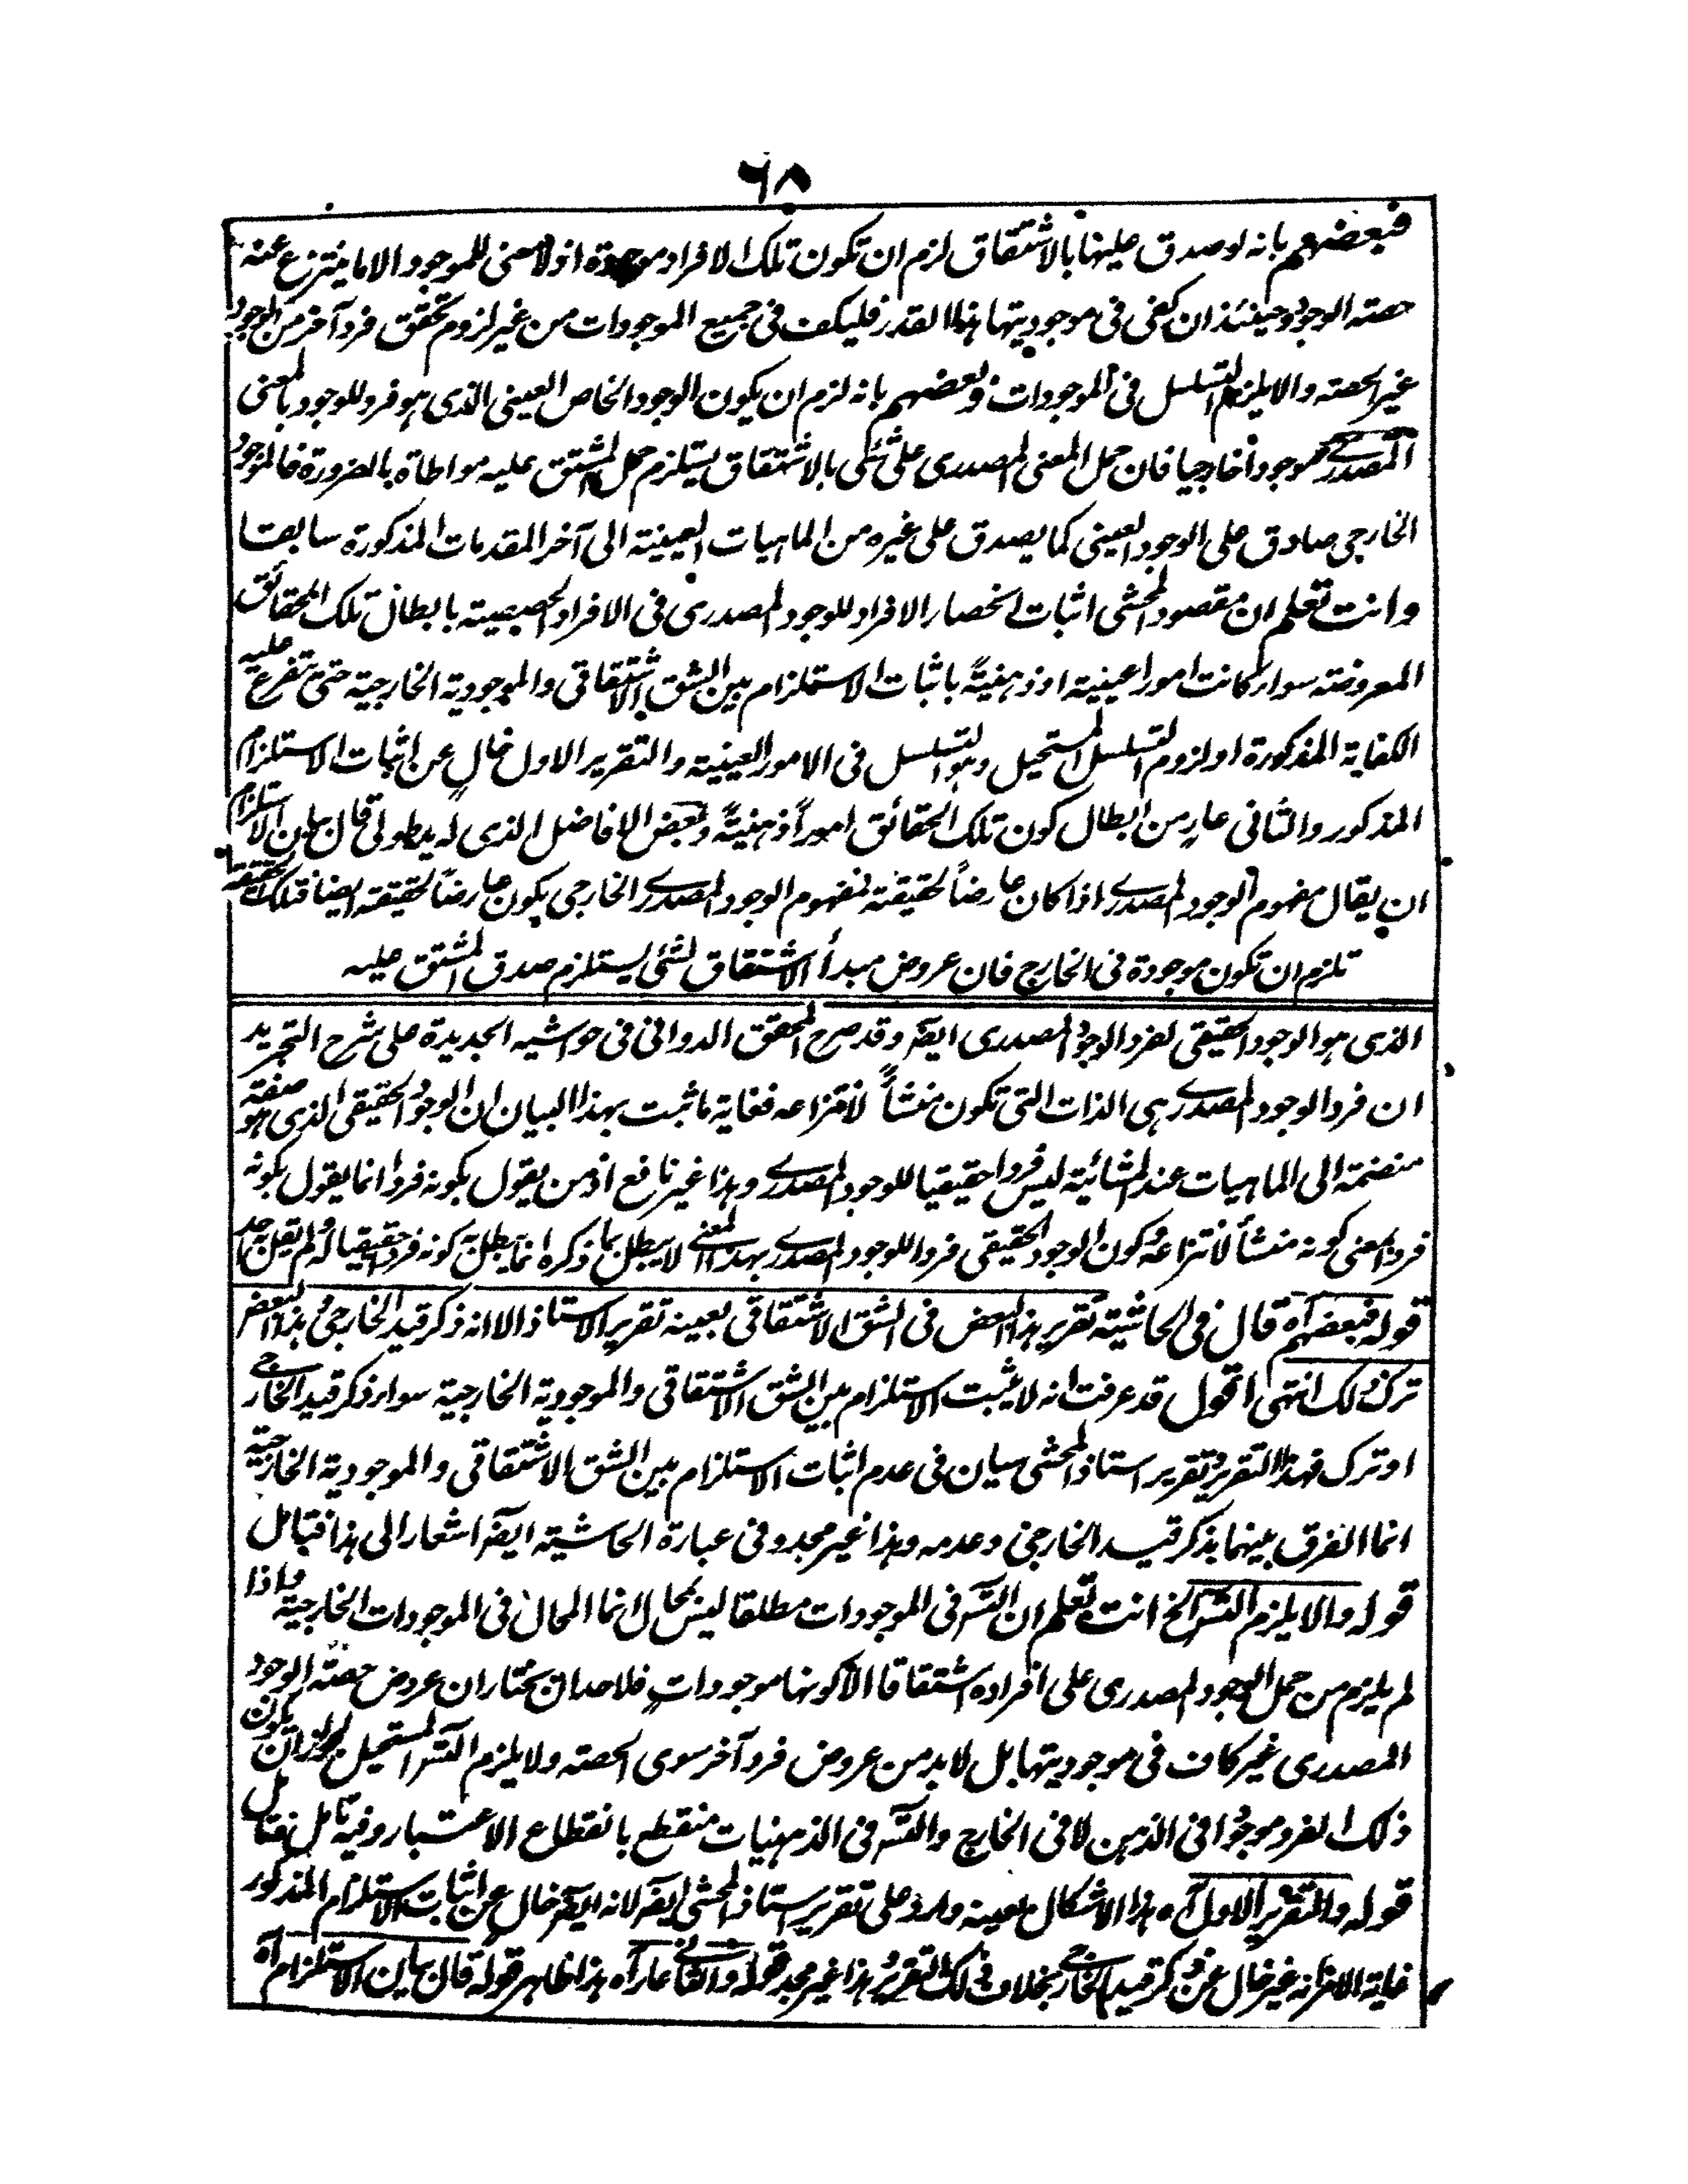 ٦٨
فبعضهم بانه لو صدق عليها بالاشتقاق لزم ان تكون تلك الافراد موجودة اذ لا معنى للموجود الا ما ينتزع عنه
حصته الوجود وحينئذ ان كفى فى موجوديتها هذا القدر فليكف فى جميع الموجودات من غير لزوم تحقق فرد آخر من الوجود
غير الحصته والا يلزم التسلسل فى الموجودات وبعضهم بانه لزم ان يكون الوجود الخاص العينى الذى هو فرد للوجود بالمعنى
المصدرے موجوداً خارجيا فان حمل المعنى المصدرى على شئى بالاشتقاق يستلزم حمل المشتق عليه مواطاة بالضرورة فالموجود
الخارجى صادق على الوجود العينى كما يصدق على غيره من الماهيات العينية الى آخر المقدمات المذكورة سابقا
وانت تعلم ان مقصود المحشى اثبات انحصار الافراد للوجود المصدرى فى الافراد الحصصية بابطال تلك الحقائق
المعروضته سواء كانت امورا عينية او ذهنيةً باثبات الاستلزام بين الشق الاشتقاقى والموجودية الخارجية حتى تفرع عليه
الكفاية المذكورة او لزوم التسلسل المستحيل وهو التسلسل فى الامور العينية والتقرير الاول خالٍ عن اثبات الاستلزام
المذكور والثانى عارٍ من ابطال كون تلك الحقائق اموراً ذهنيةً وبعض الافاضل الذى له يد طولى قال ببيان الاستلزام
ان يقال مفهوم الوجود المصدرے اذا كان عارضاً لحقيقة فمفهوم الوجود المصدرے الخارجى يكون عارضاً لحقيقته ايضا فتلك الحقيقة
تلزم ان تكون موجودة فى الخارج فان عروض مبدأ الاشتقاق لشئى يستلزم صدق المشتق عليه
الذى هو الوجود الحقيقى لفرد الوجود المصدرى ايضً وقد صرح المحقق الدوانى فى حواشيه الجديدة على شرح التجريد
ان فرد الوجود المصدرے هى الذات التى تكون منشأً لانتزاعه فغاية ما ثبت بهذا البيان ان الوجود الحقيقى الذى هو صفته
منضمة الى الماهيات عند المشائية ليس فردا حقيقيا للوجود المصدرے وهذا غير نافع اذ من يقول بكونه فردا انما يقول بكونه
فردا بمعنى كونه منشأ لانتزاعه وكون الوجود الحقيقى فردا للوجود المصدرے بهذا المعنى لا يبطل بما ذكره انما يبطل به كونه فردا حقيقيا له ولم يقل به احد
قوله فبعضهم آه قال فى الحاشية تقرير هذا البعض فى الشق الاشتقاقى بعينه تقرير الاستاذ الا انه ذكر قيد الخارجى وهذا البعض
ترك ذلك انتهى اقول قد عرفت انه لا يثبت الاستلزام بين الشق الاشتقاقى والموجودية الخارجية سواء ذكر قيد الخارجے
او ترك فهذا التقرير وتقرير استاذ المحشى سيان فى عدم اثبات الاستلزام بين الشق الاشتقاقى والموجودية الخارجية
انما الفرق بينهما بذكر قيد الخارجى وعدمه وهذا غير مجد وفى عبارة الحاشية ايضً اشعار الى هذا فتامل
قوله والا يلزم التسّ الخ انت تعلم ان التسّ فى الموجودات مطلقا ليس بمحال انما المحال فى الموجودات الخارجية واذا
لم يلزم من حمل الوجود المصدرى على افراده اشتقاقا الا كونها موجوداتٍ فلاحد ان يختار ان عروض حصته الوجود
المصدرى غير كاف فى موجوديتها بل لابد من عروض فرد آخر سوى الحصته ولا يلزم التسّ المستحيل لجواز ان يكون
ذلك الفرد موجودا فى الذهن لا فى الخارج والتسّ فى الذهنيات منقطع بانقطاع الاعتبار وفيه تامل فتامل
قوله والتقرير الاول آه هذا الاشكال بعينه وارد على تقرير استاذ المحشى ايضً لانه ايضً خال عن اثبات الاستلزام المذكور
غاية الامر انه غير خال عن ذكر قيد الخارجى بخلاف ذلك التقرير وهذا غير مجد قوله والثانے عار آه هذا ظاهر قوله قال ببيان الاستلزام آه